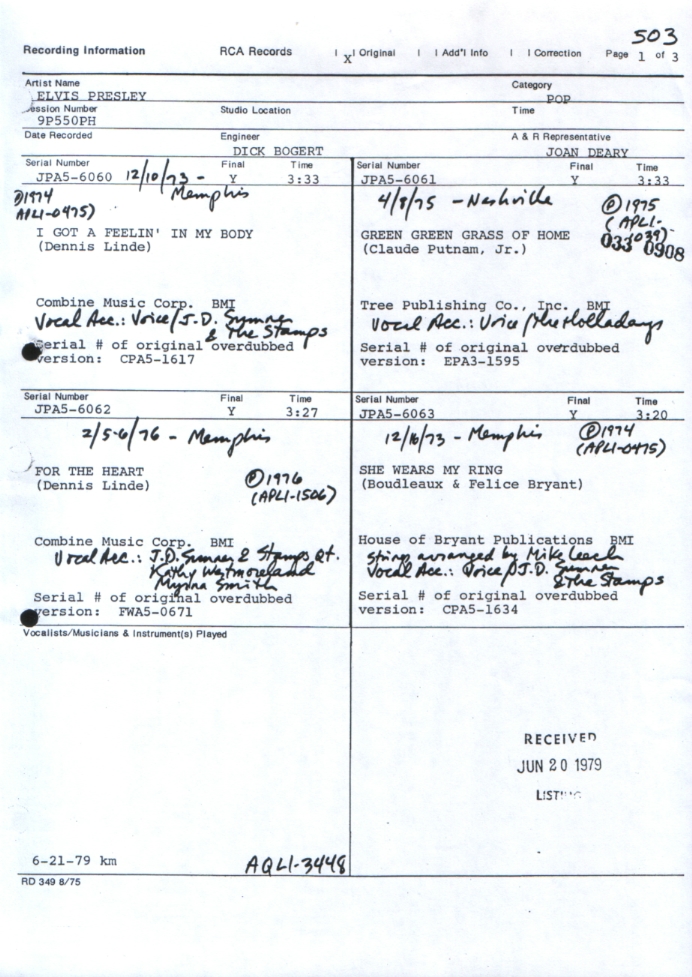 503
Recording Information RCA Records | X | Original | | Add'l Info | | Correction Page 1 of 3
Artist Name Category
ELVIS PRESLEY POP
Session Number Studio Location Time
9P550PH
Date Recorded Engineer A & R Representative
DICK BOGERT JOAN DEARY
Serial Number Final Time
JPA5-6060 12/10/73 - Y 3:33
Memphis
Ⓟ1974
APL1-0475)
I GOT A FEELIN' IN MY BODY
(Dennis Linde)
Combine Music Corp. BMI
Vocal Acc.: Voice/J.D. Sumner
& The Stamps
Serial # of original overdubbed
version: CPA5-1617
Serial Number Final Time
JPA5-6061 Y 3:33
4/8/75 - Nashville Ⓟ1975
(APL1-
033 0908
GREEN GREEN GRASS OF HOME
(Claude Putnam, Jr.)
Tree Publishing Co., Inc. BMI
Vocal Acc.: Voice/The Holladays
Serial # of original overdubbed
version: EPA3-1595
Serial Number Final Time
JPA5-6062 Y 3:27
2/5-6/76 - Memphis
FOR THE HEART
(Dennis Linde)
Ⓟ1976
(APL1-1506)
Combine Music Corp. BMI
Vocal Acc.: J.D. Sumner & Stamps Qt.
Kathy Westmoreland
Myrna Smith
Serial # of original overdubbed
version: FWA5-0671
Serial Number Final Time
JPA5-6063 Y 3:20
12/16/73 - Memphis Ⓟ1974
(APL1-0475)
SHE WEARS MY RING
(Boudleaux & Felice Bryant)
House of Bryant Publications BMI
String arranged by Mike Leech
Vocal Acc.: Voice/J.D. Sumner
& The Stamps
Serial # of original overdubbed
version: CPA5-1634
Vocalists/Musicians & Instrument(s) Played
RECEIVED
JUN 20 1979
6-21-79 km AQL1-3448
RD 349 8/75